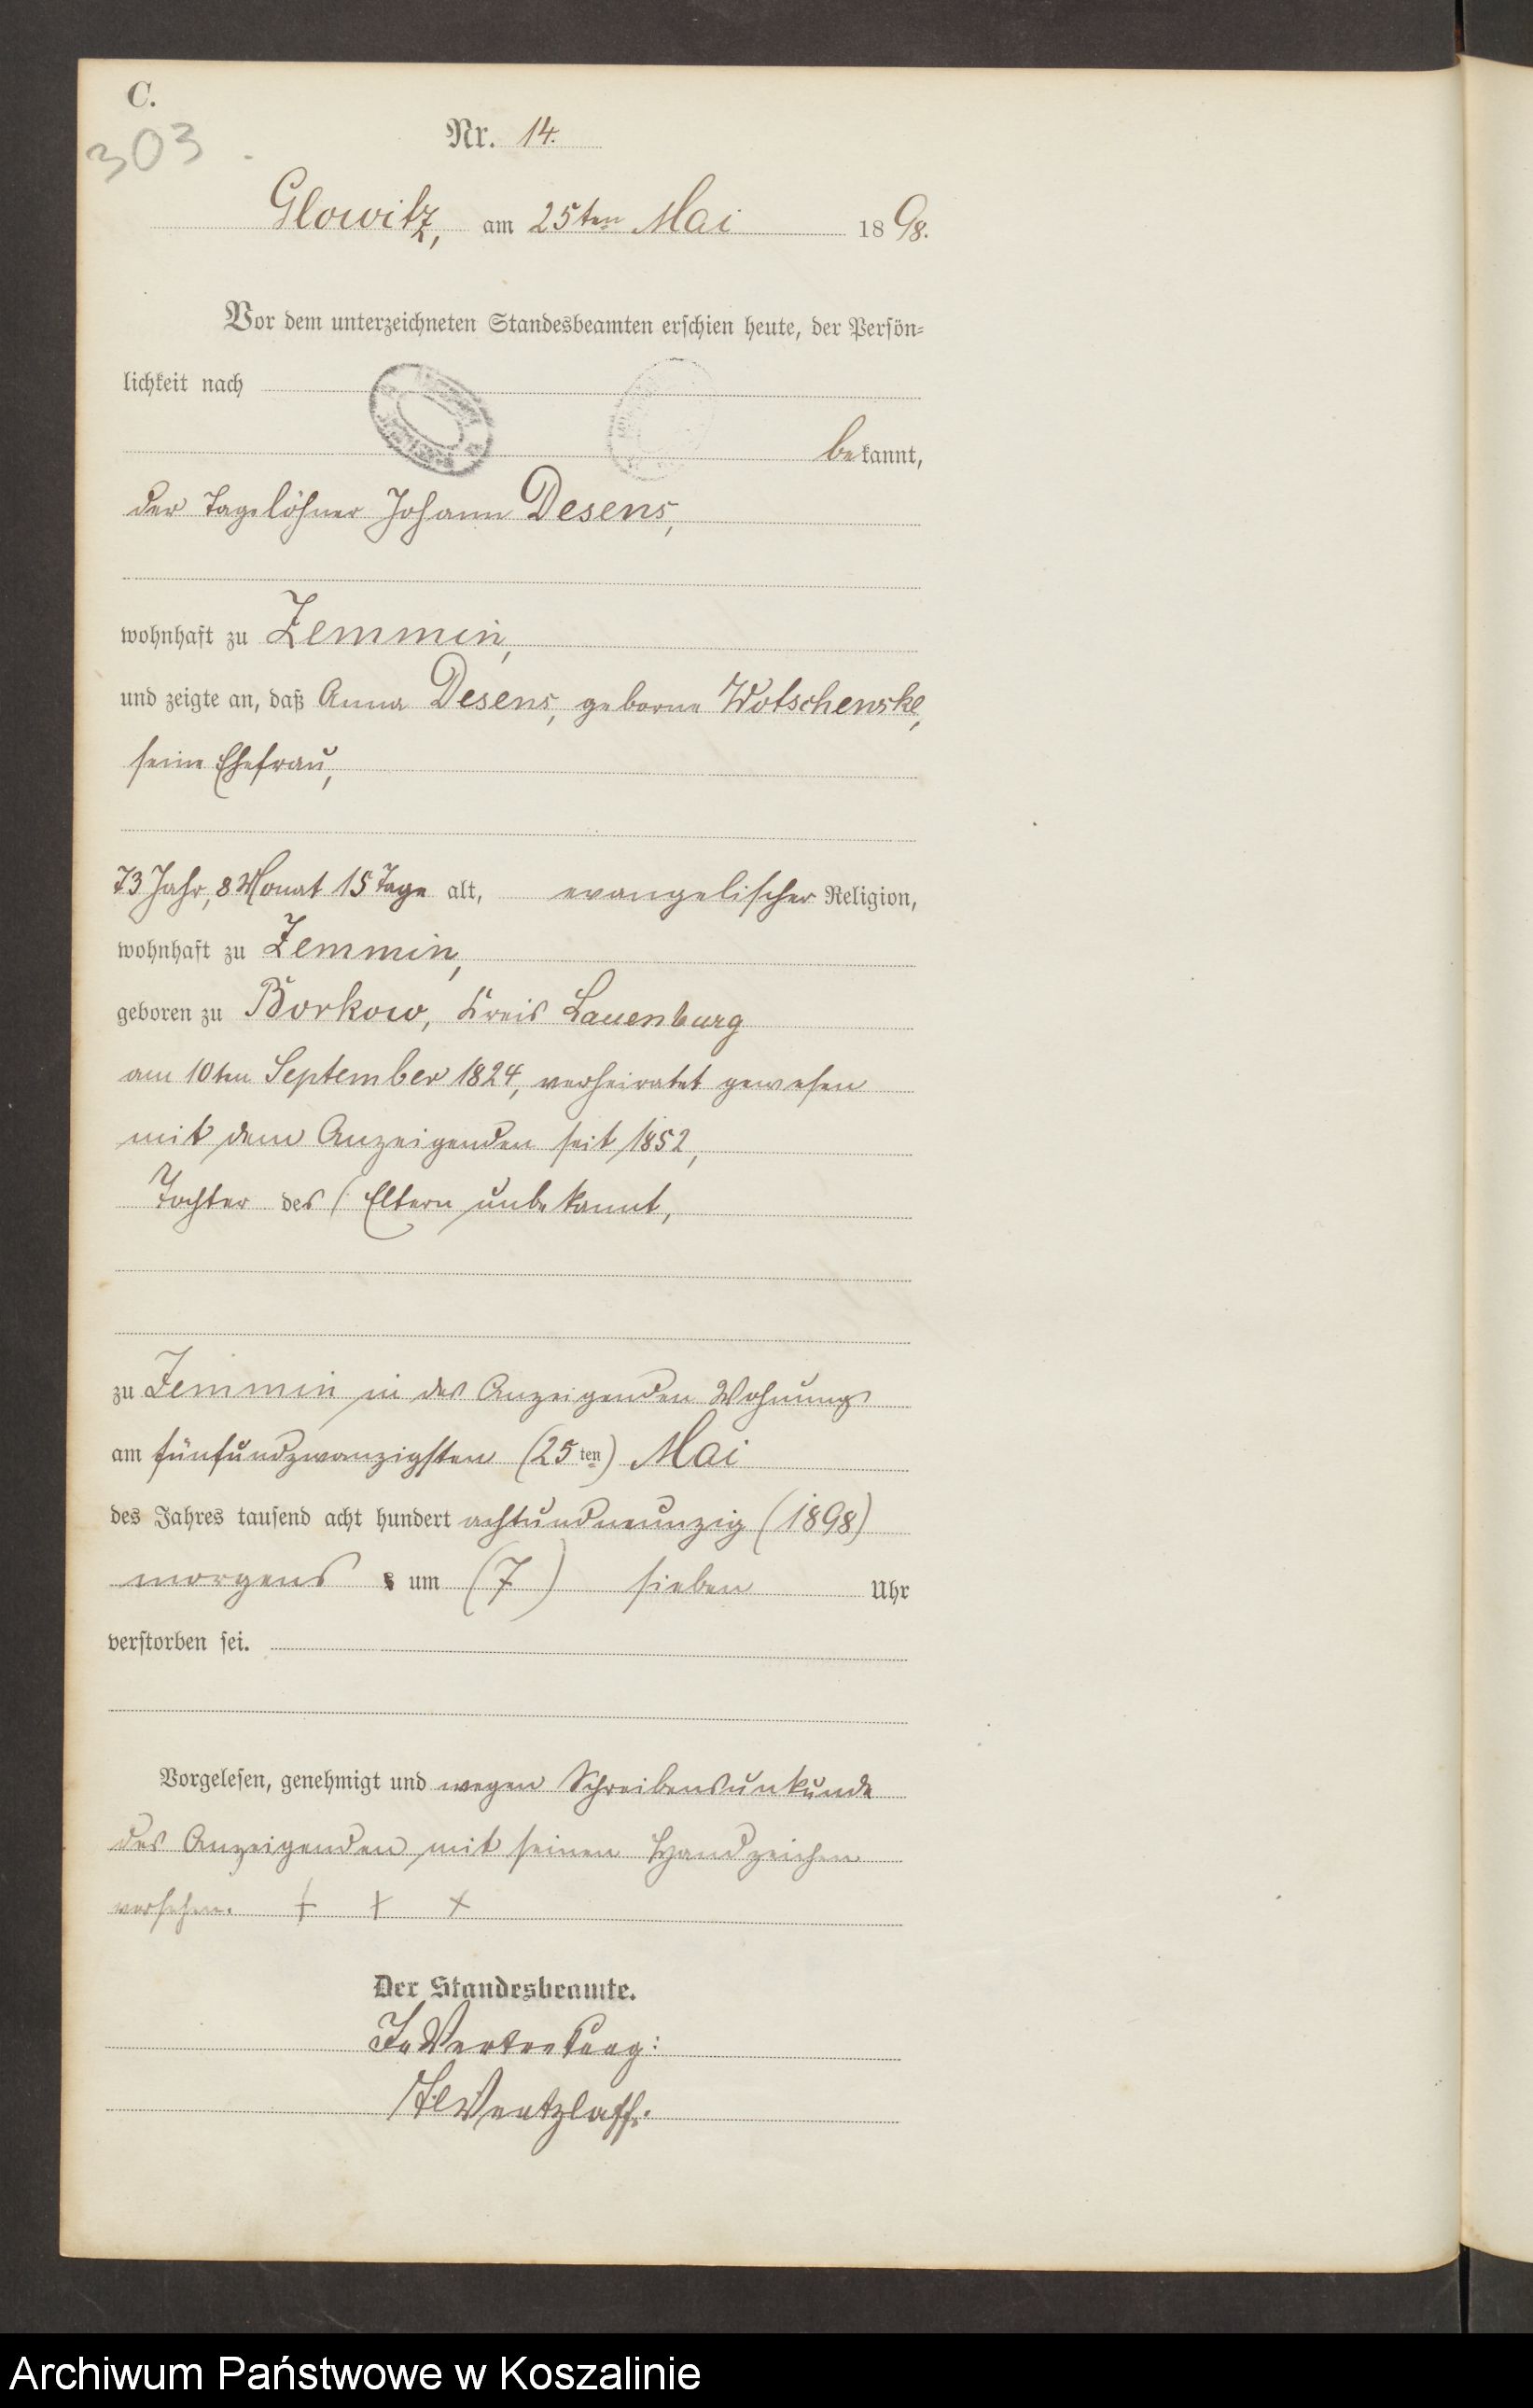 C.
303
Nr. 14.
Glowitz, am 25ten Mai 1898.
Vor dem unterzeichneten Standesbeamten erschien heute, der Persön-
lichkeit nach
bekannt,
der Tagelöhner Johann Desens,
wohnhaft zu Zemmin,
und zeigte an, daß Anna Desens, geborne Wotschenske,
seine Ehefrau,
73 Jahr, 8 Monat 15 Tage alt, evangelischer Religion,
wohnhaft zu Zemmin,
geboren zu Borkow, Kreis Lauenburg
am 10ten September 1824, verheiratet gewesen
mit dem Anzeigenden seit 1852,
Tochter des (Eltern unbekannt,
zu Zemmin in des Anzeigenden Wohnung
am fünfundzwanzigsten (25ten) Mai
des Jahres tausend acht hundert achtundneunzig (1898)
morgens um (7) sieben Uhr
verstorben sei.
Vorgelesen, genehmigt und wegen Schreibensunkunde
des Anzeigenden mit seinen Handzeichen
versehen. + + +
Der Standesbeamte.
In Vertretung:
Wentzlaff.
Archiwum Państwowe w Koszalinie